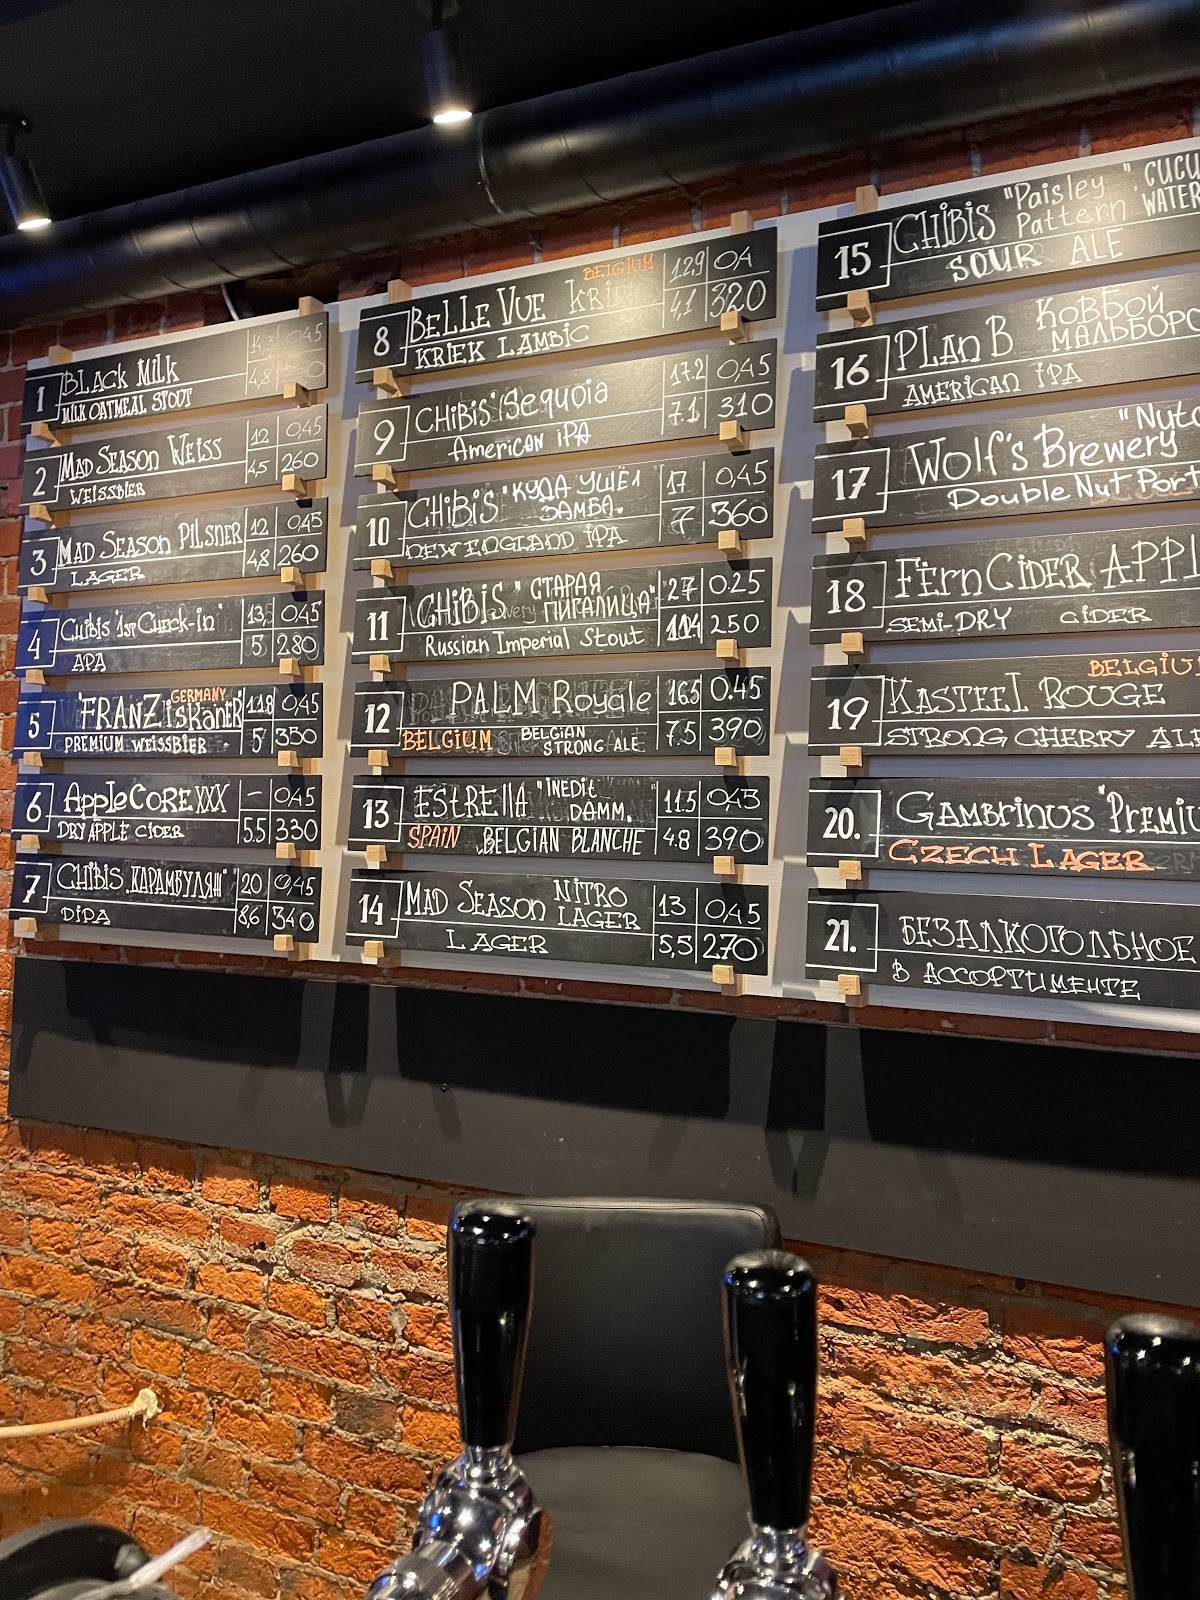 1 BLACK MILK 14,3 0,45
MILK OATMEAL STOUT 4,8
2 MAD SEASON WEISS 12 0,45
WEISSBIER 4,5 260
3 MAD SEASON PILSNER 12 0,45
LAGER 4,8 260
4 CHIBIS '1ST CHECK-IN' 13,5 0,45
APA 5 280
GERMANY
5 FRANZISKANER 11.8 0,45
PREMIUM WEISSBIER 5 350
6 APPLE CORE XXX - 0,45
DRY APPLE CIDER 5.5 330
7 CHIBIS "КАРАМБУЛЯЖ" 20 0,45
DIPA 8,6 340
BELGIUM
8 BELLE VUE 12.9 0,4
KRIEK LAMBIC 4,1 320
9 CHIBIS "Sequoia 17.2 0,45
American IPA 7.1 310
10 CHIBIS "КУДА УШЁЛ 17 0,45
ЗАМБА.
NEW ENGLAND IPA 7 360
11 CHIBIS "СТАРАЯ 27 0.25
ПИГАЛИЦА"
Russian Imperial Stout 250
12 PALM Royale 16.5 0.45
BELGIUM BELGIAN 7.5 390
STRONG ALE
13 ESTRELLA "INEDIT 11.5 0,45
DAMM.
SPAIN BELGIAN BLANCHE 4.8 390
14 MAD SEASON NITRO 13 0,45
LAGER
LAGER 5,5 270
15 CHIBIS "Paisley "
Pattern
SOUR ALE
16 PLAN B КОВБОЙ
AMERICAN IPA
17 Wolf's Brewery
Double Nut
18 FERN CIDER
SEMI-DRY CIDER
19 KASTEEL ROUGE
STRONG CHERRY
20. GAMBRINUS
CZECH LAGER
21. БЕЗАЛКОГОЛЬНОЕ
В АССОРТИМЕНТЕ